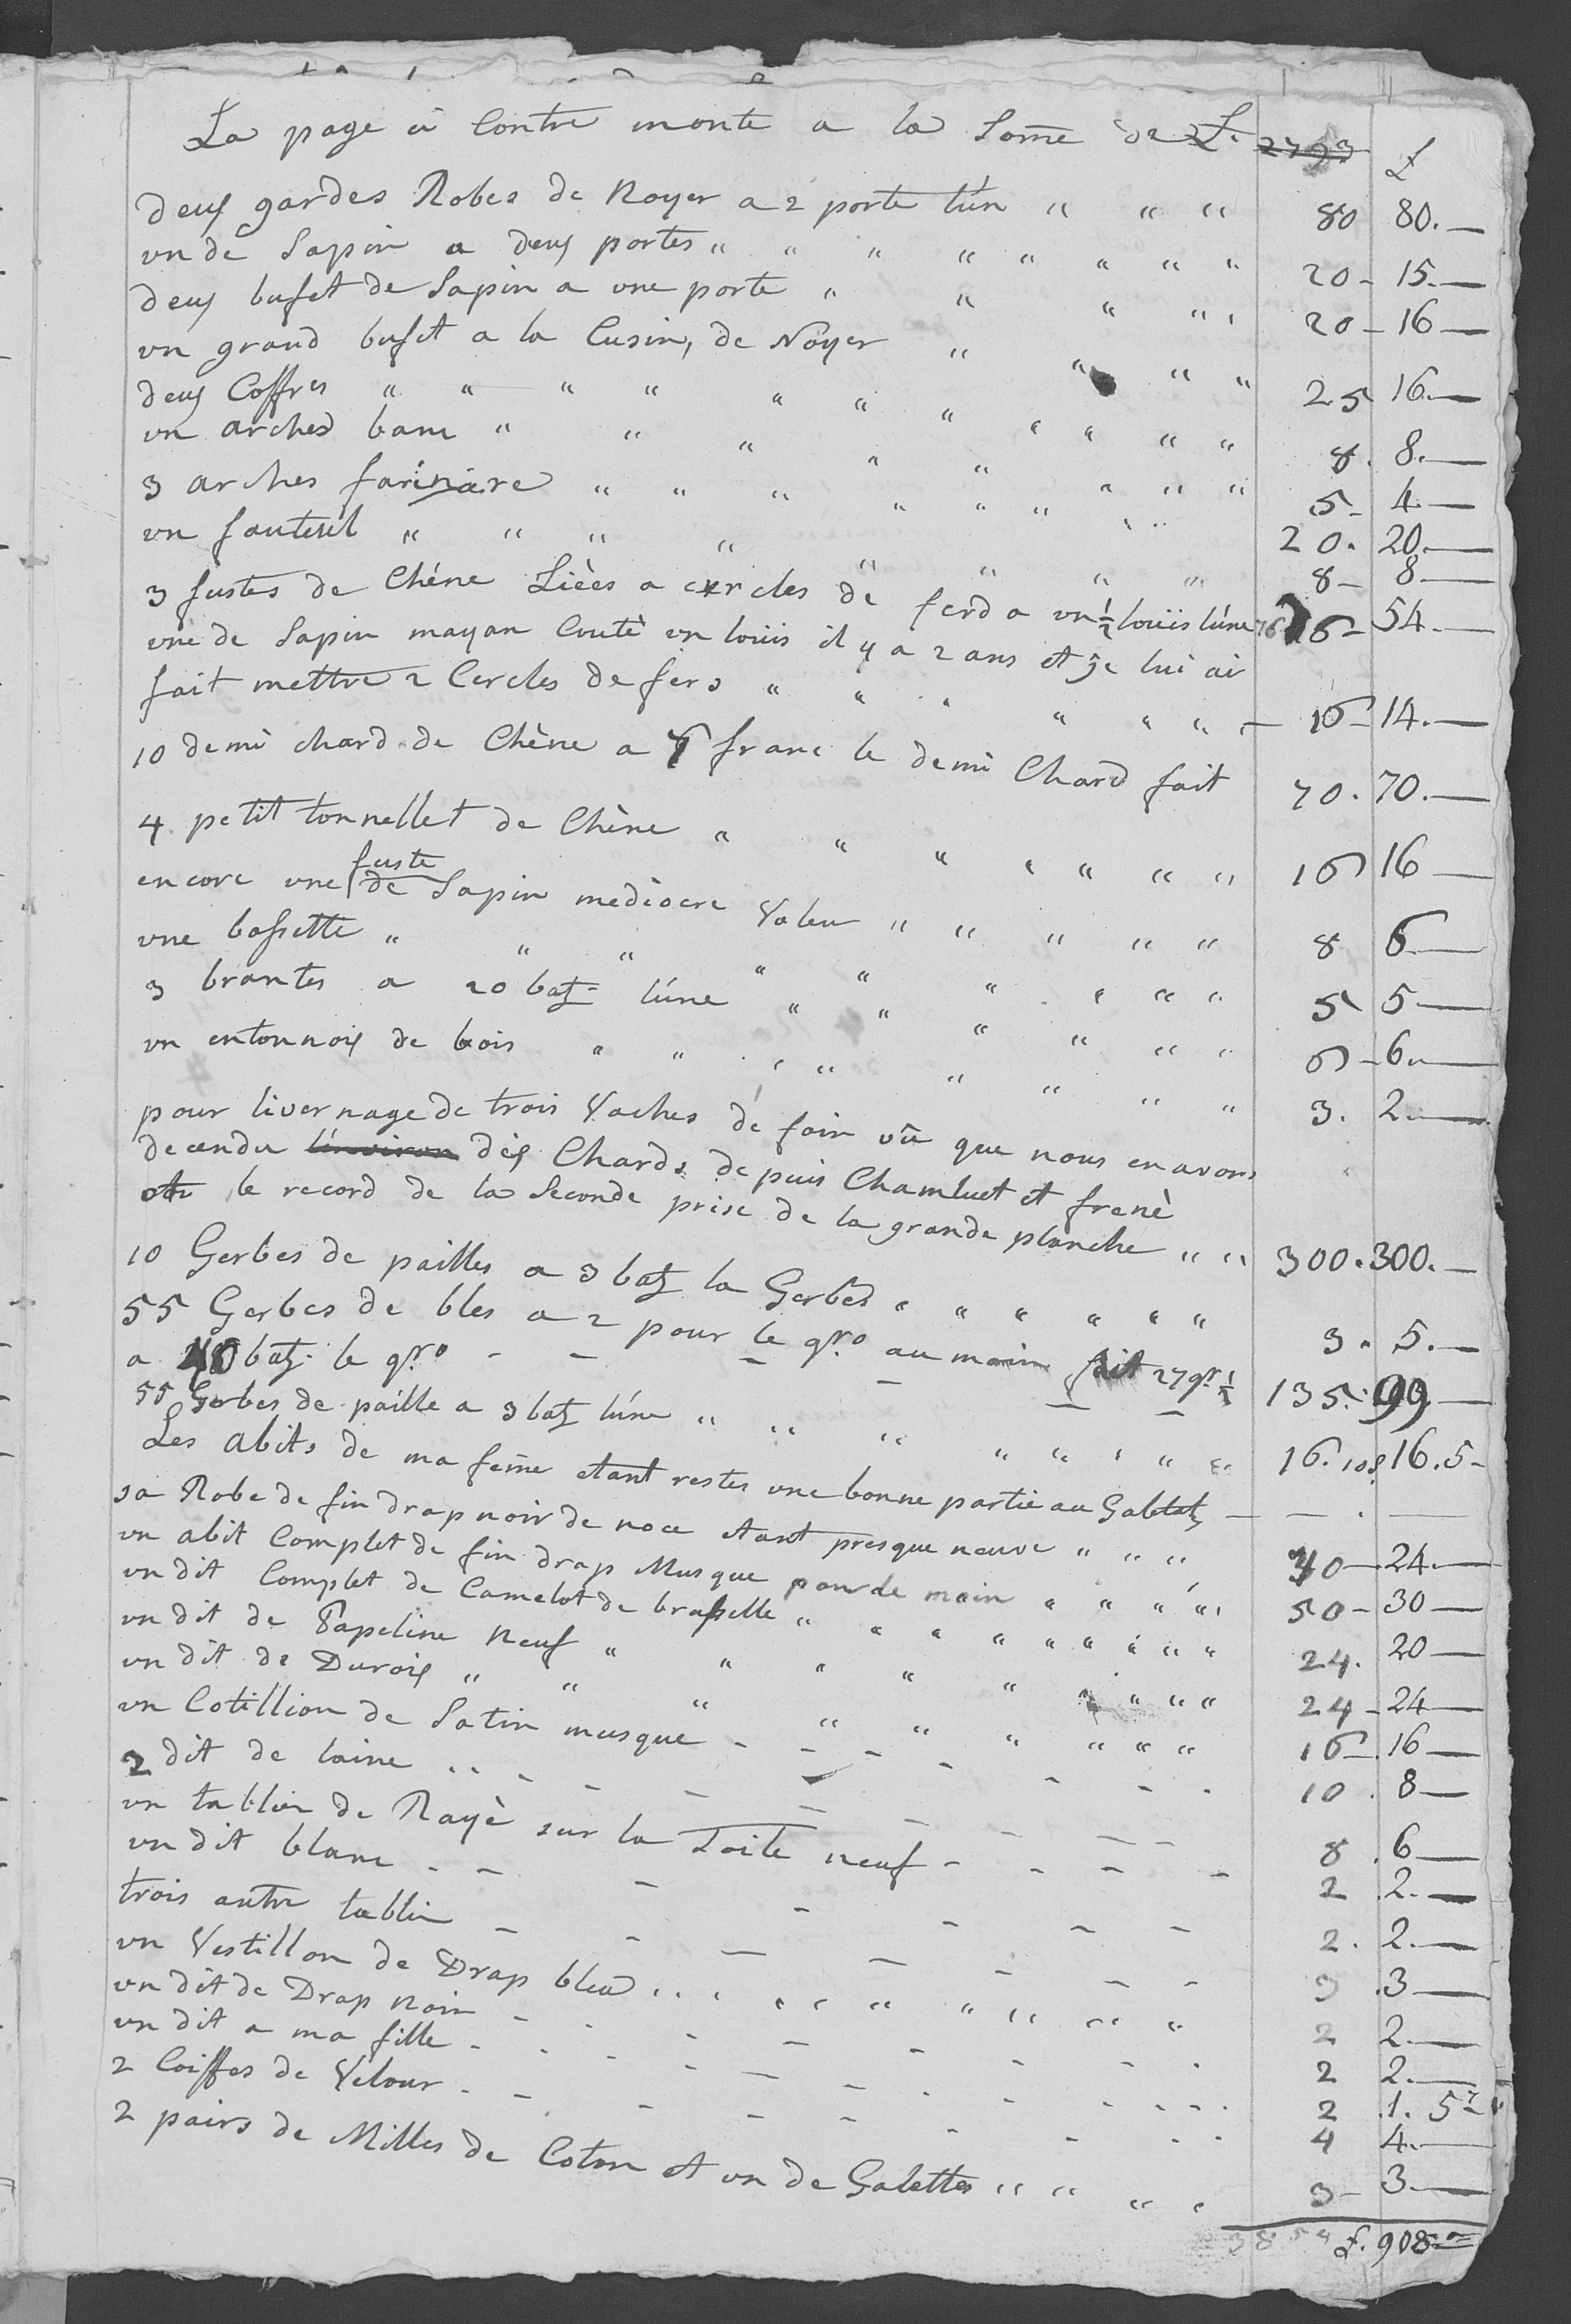 La page ci Contre monte a la Some de L. 2793 £
deux gardes Robes de Noyer a 2 porte l'un " " " 80 80.—
un de Sapin a deux portes " " " " " " " " 20 - 15.—
deux bufet de Sapin a une porte " " " " ' 20 - 16 —
un grand bufet a la Cusin, de Noyer " " " " 25 16.—
deux Coffres " " " " " " " " " " " 8. 8.—
un arched banc " " " " " " " " 5 - 4.—
3 arches farinaire " " " " " " " " 20. 20.—
un fauteuil " " " " " " " " 8 - 8 —
3 fustes de Chêne Liées a cercles de ferd a un ½ louïs l'une 76 - 54.—
une de Sapin mayan Coutè un louïs il y a 2 ans et je lui ai
fait mettre 2 Cercles de fers " " " " " " — 16 - 14.—
10 demi chard de Chêne a 7 franc le demi Chard fait 70. 70.—
4 petit tonnellet de Chêne " " " " " " " 16 16 —
encore une fuste de Sapin mediocre Valeu " " " " " 8 6.—
une bossette " " " " " " " " " 5 5 —
3 brantes a 20 batz l'une " " " " " " 6 - 6.—
un entonnoix de bois " " " " " " " " 3. 2.—
pour livernage de trois Vaches de foin vû que nous en avons
decendu l'inviron dix Chards depuis Chambuet et frenè
et le record de la Seconde prise de la grande planche " " 300. 300.—
10 Gerbes de pailles a 3 batz la Gerbes " " " " " " 3. 5.—
55 Gerbes de bles a 2 pour le qro au main fait 27 qr ½
a batz le qro - - - - - - 135. 99 —
55 Gerbes de paille a 3 batz l'une " " " " " " " " 16. 10 s 16.5 -
Les abits de ma feme etant restes une bonne partie au Galetat — — . —
sa Robe de fin drap noir de noce etant presque neuve " " " 40 — 24.—
un abit Complet de fin drap Musque pour le main " " " " 50 - 30 —
un dit Complet de Camelot de brusselle " " " " " " " " " 24. 20 —
un dit de Papeline Neuf " " " " " " " " " " 24 - 24 —
un dit de Durois " " " " " " " " " 16 - 16 —
un Cotillion de Satin musque - - - - - - - 10. 8 —
2 dit de laine - - - - - - - - - 8. 6 —
un tablier de Rayè sur la Toile neuf - - - - 2 2.—
un dit blanc - - - - - - - 2. 2.—
trois autre tablie - - - - - - - 3 .3 —
un Vestillon de Drap bleu " " " " " " " " 2 2.—
un dit de Drap noir - - - - - - - - 2 2.—
un dit a ma fille - - - - - - - - - - 2 .1. 5
2 Coiffes de Velour - - - - - - - - - 4 4.—
2 pairs de Milles de Coton et un de Galettes " " " " 3 - 3.—
3854 £. 908